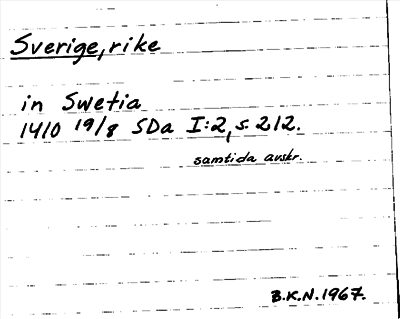 Sverige, rike
in Swetia
1410 19/8 SDa I:2, s. 212.
samtida avskr.
B.K.N. 1967.